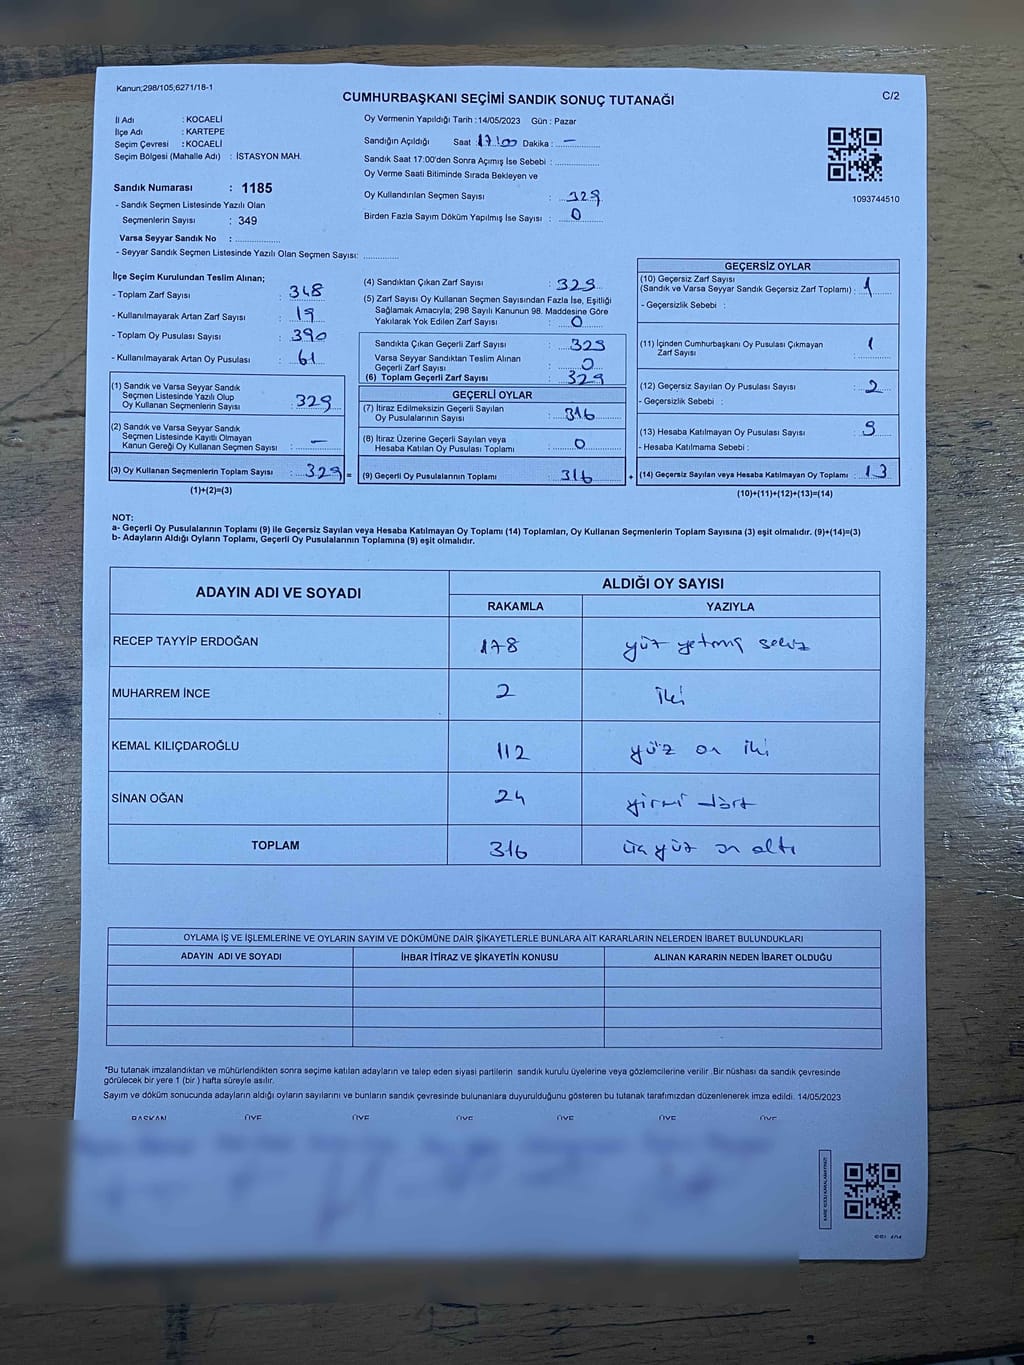 Kanun;298/105;6271/18-1
CUMHURBAŞKANI SEÇİMİ SANDIK SONUÇ TUTANAĞI
C/2
İl Adı : KOCAELİ
İlçe Adı : KARTEPE
Seçim Çevresi : KOCAELİ
Seçim Bölgesi (Mahalle Adı) : İSTASYON MAH.
Sandık Numarası : 1185
- Sandık Seçmen Listesinde Yazılı Olan
Seçmenlerin Sayısı : 349
Varsa Seyyar Sandık No : ................
- Seyyar Sandık Seçmen Listesinde Yazılı Olan Seçmen Sayısı: ............
Oy Vermenin Yapıldığı Tarih :14/05/2023 Gün : Pazar
Sandığın Açıldığı Saat : 17.00 Dakika : —
Sandık Saat 17:00'den Sonra Açımış İse Sebebi : ................
Oy Verme Saati Bitiminde Sırada Bekleyen ve
Oy Kullandırılan Seçmen Sayısı : 329
Birden Fazla Sayım Döküm Yapılmış İse Sayısı : 0
1093744510
İlçe Seçim Kurulundan Teslim Alınan;
- Toplam Zarf Sayısı : 348
- Kullanılmayarak Artan Zarf Sayısı : 19
- Toplam Oy Pusulası Sayısı : 390
- Kullanılmayarak Artan Oy Pusulası : 61
(1) Sandık ve Varsa Seyyar Sandık
Seçmen Listesinde Yazılı Olup
Oy Kullanan Seçmenlerin Sayısı : 329
(2) Sandık ve Varsa Seyyar Sandık
Seçmen Listesinde Kayıtlı Olmayan
Kanun Gereği Oy Kullanan Seçmen Sayısı : —
(3) Oy Kullanan Seçmenlerin Toplam Sayısı : 329 =
(1)+(2)=(3)
(4) Sandıktan Çıkan Zarf Sayısı : 329
(5) Zarf Sayısı Oy Kullanan Seçmen Sayısından Fazla İse, Eşitliği
Sağlamak Amacıyla; 298 Sayılı Kanunun 98. Maddesine Göre
Yakılarak Yok Edilen Zarf Sayısı : 0
Sandıkta Çıkan Geçerli Zarf Sayısı : 329
Varsa Seyyar Sandıktan Teslim Alınan
Geçerli Zarf Sayısı : 0
(6) Toplam Geçerli Zarf Sayısı : 329
GEÇERLİ OYLAR
(7) İtiraz Edilmeksizin Geçerli Sayılan
Oy Pusulalarının Sayısı : 316
(8) İtiraz Üzerine Geçerli Sayılan veya
Hesaba Katılan Oy Pusulası Toplamı : 0
(9) Geçerli Oy Pusulalarının Toplamı : 316 +
GEÇERSİZ OYLAR
(10) Geçersiz Zarf Sayısı
(Sandık ve Varsa Seyyar Sandık Geçersiz Zarf Toplamı) : 1
- Geçersizlik Sebebi :
(11) İçinden Cumhurbaşkanı Oy Pusulası Çıkmayan
Zarf Sayısı : 1
(12) Geçersiz Sayılan Oy Pusulası Sayısı : 2
- Geçersizlik Sebebi :
(13) Hesaba Katılmayan Oy Pusulası Sayısı : 9
- Hesaba Katılmama Sebebi :
(14) Geçersiz Sayılan veya Hesaba Katılmayan Oy Toplamı : 13
(10)+(11)+(12)+(13)=(14)
NOT:
a- Geçerli Oy Pusulalarının Toplamı (9) ile Geçersiz Sayılan veya Hesaba Katılmayan Oy Toplamı (14) Toplamları, Oy Kullanan Seçmenlerin Toplam Sayısına (3) eşit olmalıdır. (9)+(14)=(3)
b- Adayların Aldığı Oyların Toplamı, Geçerli Oy Pusulalarının Toplamına (9) eşit olmalıdır.
ADAYIN ADI VE SOYADI ALDIĞI OY SAYISI
RAKAMLA YAZIYLA
RECEP TAYYİP ERDOĞAN 178 yüz yetmiş sekiz
MUHARREM İNCE 2 iki
KEMAL KILIÇDAROĞLU 112 yüz on iki
SİNAN OĞAN 24 yirmi dört
TOPLAM 316 üç yüz on altı
OYLAMA İŞ VE İŞLEMLERİNE VE OYLARIN SAYIM VE DÖKÜMÜNE DAİR ŞİKAYETLERLE BUNLARA AİT KARARLARIN NELERDEN İBARET BULUNDUKLARI
ADAYIN ADI VE SOYADI İHBAR İTİRAZ VE ŞİKAYETİN KONUSU ALINAN KARARIN NEDEN İBARET OLDUĞU
*Bu tutanak imzalandıktan ve mühürlendikten sonra seçime katılan adayların ve talep eden siyasi partilerin sandık kurulu üyelerine veya gözlemcilerine verilir .Bir nüshası da sandık çevresinde
görülecek bir yere 1 (bir ) hafta süreyle asılır.
Sayım ve döküm sonucunda adayların aldığı oyların sayılarını ve bunların sandık çevresinde bulunanlara duyurulduğunu gösteren bu tutanak tarafımızdan düzenlenerek imza edildi. 14/05/2023
BAŞKAN ÜYE ÜYE ÜYE ÜYE ÜYE ÜYE